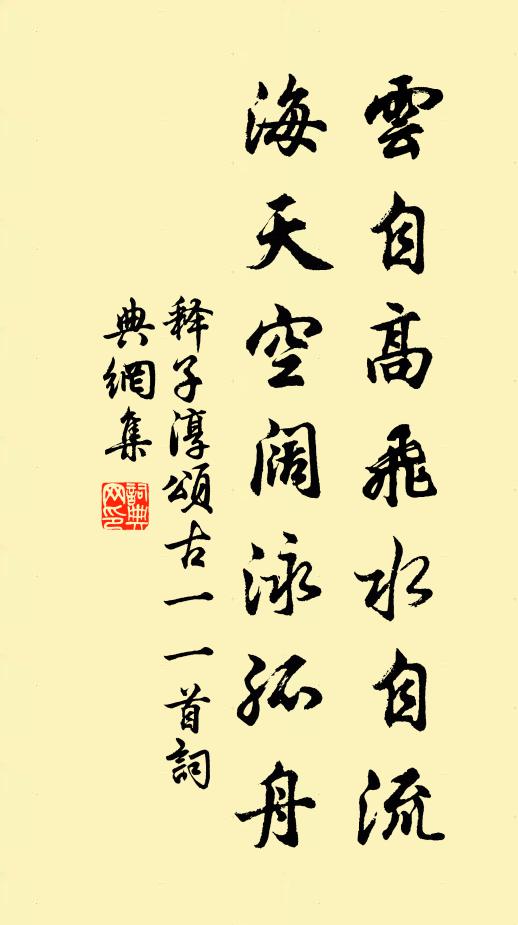 雲自高飛水自流
海天空闊泳孤舟
释子淳頌古一一首詞
典網集
詞典網印